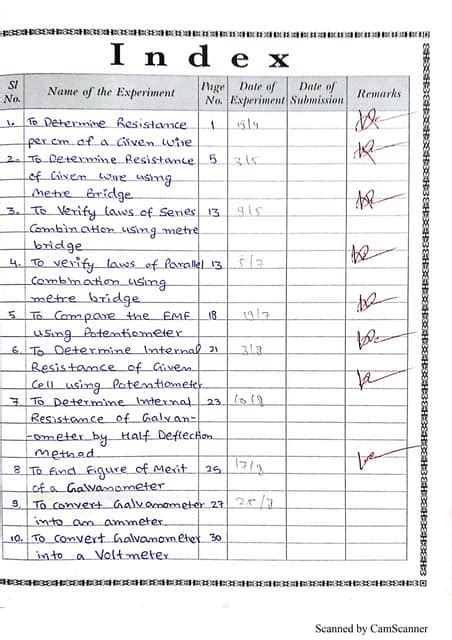 Index
Sl No. Name of the Experiment Page No. Date of Experiment Date of Submission Remarks
1. To Determine Resistance 1 15/4
per cm of a Given wire
2. To Determine Resistance 5 3/5
of Given wire using
Metre Bridge
3. To Verify laws of Series 13 9/5
Combination using metre
bridge
4. To verify laws of Parallel 13 5/7
Combination using
metre bridge
5 To Compare the EMF 18 19/7
using Potentiometer
6. To Determine Internal 21 3/8
Resistance of Given
Cell using Potentiometer
7. To Determine Internal 23
Resistance of Galvan-
-ometer by Half Deflection
Method.
8 To Find Figure of Merit 25
of a Galvanometer
9. To convert Galvanometer 27
into an ammeter.
10. To convert Galvanometer 30
into a Voltmeter
Scanned by CamScanner